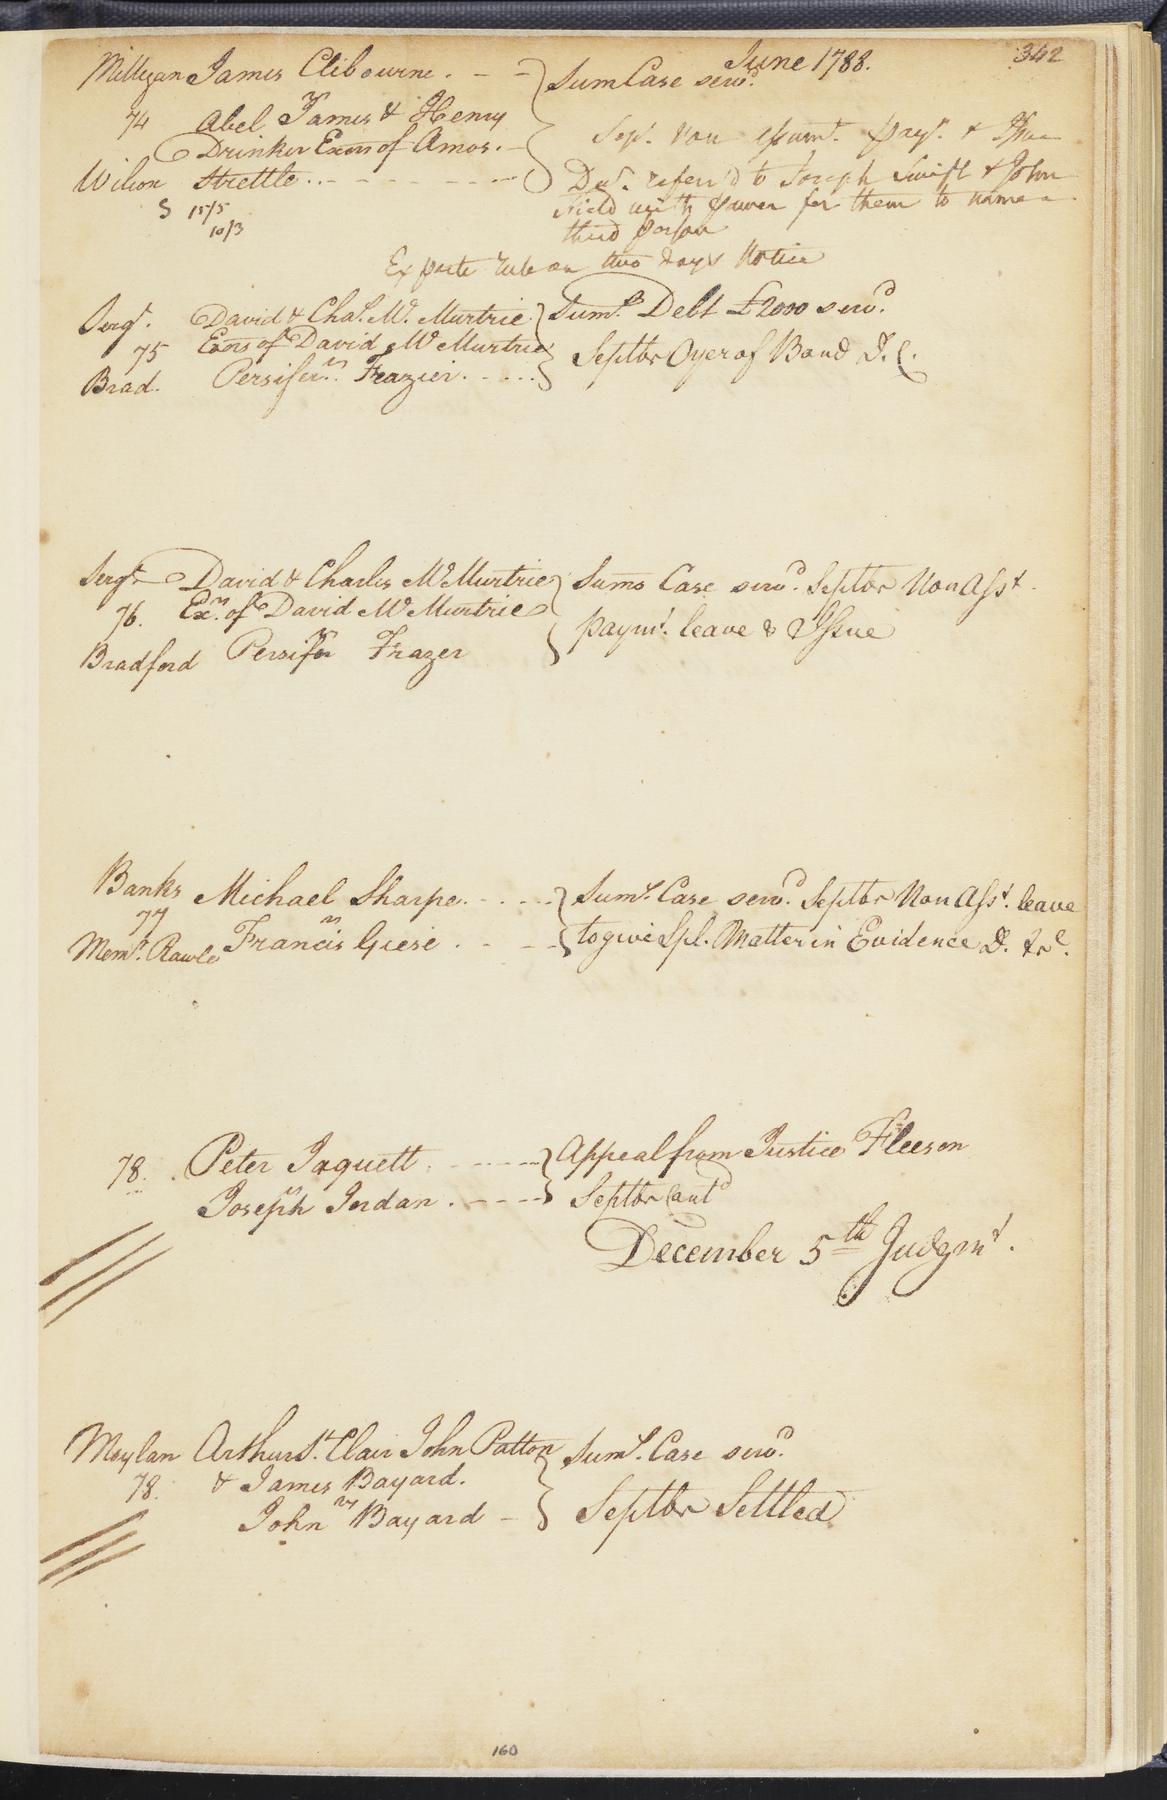 June 1788. 342
Milligan James Clibourne. - - } Sum Case serv.d
74 Abel James & Henry
Drinker Exors of Amos. - Sep.t non assumt. payt. & Issue
Wilson Strettle... - - - - Decr. referr'd to Joseph Swift & John
S 15/5 Field with power for them to name a
10/3 third person
Ex parte rule on two days Notice
Sergt. David & Chas. Mc. Murtrie } Sums. Debt £2000 serv.d
75 Exors of David McMurtrie
Brad. Persifer Frazier. - .... } Septbr Oyer of Bond I. C.
Sergt David & Charles McMurtrie } Sums Case serv.d Septbr Non Asst.
76. Exrs. of David McMurtrie
Bradford vs Persifor Frazer } paymt. leave & Issue
Banks Michael Sharpe. - . . - - } Sums. Case serv.d Septbr Non Asst. leave
77 vs
Mem.t Rawle Francis Giese . - - - } to give Spl. Matter in Evidence D. &c.
78. Peter Jaquett . - - - - } Appeal from Justice Fleeson
vs Joseph Jordan . - - - - } Septbr Cont.d
December 5th Judgmt.
Moylan Arthur St. Clair John Patton } Sums. Case serv.d
78. & James Bayard.
vs John Bayard - } Septbr Settled
160